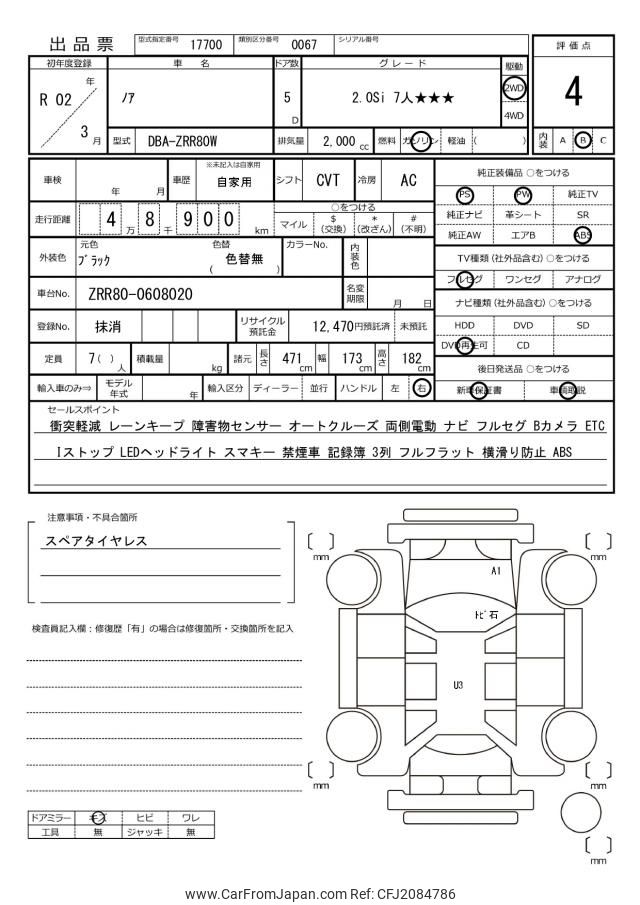 出品票 型式指定番号 17700 類別区分番号 0067 シリアル番号
評価点
4
内装 A B C
初年度登録 車名 ドア数 グレード 駆動
R 02 年 3 月
ノア 5 D 2.0Si 7人★★★ 2WD 4WD
型式 DBA-ZRR80W 排気量 2,000 cc 燃料 ガソリン 軽油 ( )
車検 年 月 車歴 ※未記入は自家用 自家用 シフト CVT 冷房 AC
走行距離 4 万 8 千 9 0 0 km
○をつける
マイル $ (交換) * (改ざん) # (不明)
外装色 元色 ブラック 色替 ( 色替無 ) カラーNo. 内装色
車台No. ZRR80-0608020 名変期限 月 日
登録No. 抹消 リサイクル預託金 12,470円預託済 未預託
定員 7 ( ) 人 積載量 kg 諸元 長さ 471 cm 幅 173 cm 高さ 182 cm
輸入車のみ⇒ モデル年式 年 輸入区分 ディーラー 並行 ハンドル 左 右
純正装備品 ○をつける
PS PW 純正TV
純正ナビ 革シート SR
純正AW エアB ABS
TV種類 (社外品含む) ○をつける
フルセグ ワンセグ アナログ
ナビ種類 (社外品含む) ○をつける
HDD DVD SD
DVD再生可 CD
後日発送品 ○をつける
新車保証書 車輌取説
セールスポイント
衝突軽減 レーンキープ 障害物センサー オートクルーズ 両側電動 ナビ フルセグ Bカメラ ETC
Iストップ LEDヘッドライト スマキー 禁煙車 記録簿 3列 フルフラット 横滑り防止 ABS
注意事項・不具合箇所
スペアタイヤレス
検査員記入欄：修復歴「有」の場合は修復箇所・交換箇所を記入
ドアミラー キズ ヒビ ワレ
工具 無 ジャッキ 無
mm
mm
A1
トビ石
U3
mm
mm
mm
www.CarFromJapan.com Ref: CFJ2084786